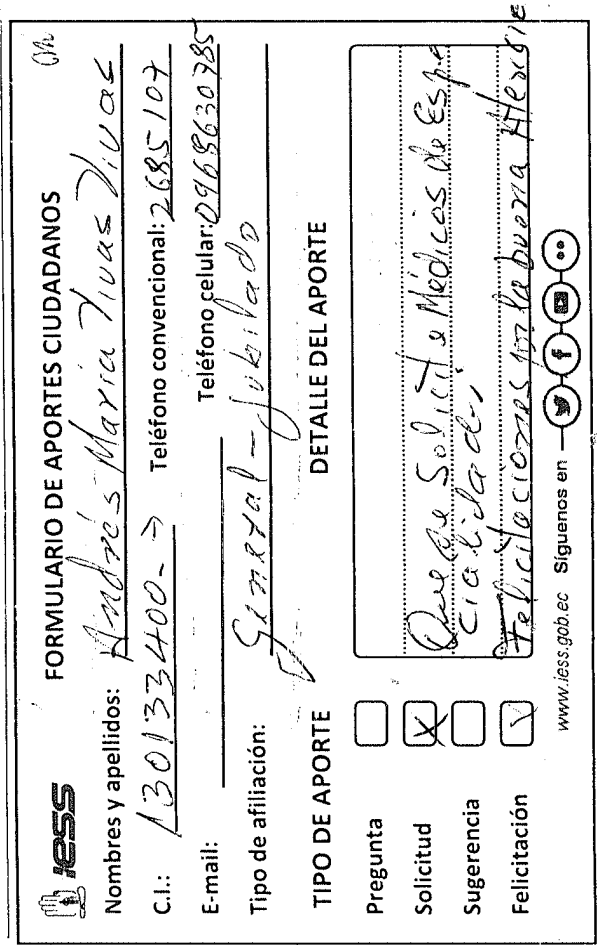 iess
FORMULARIO DE APORTES CIUDADANOS
Nombres y apellidos: Andrés María Vivas Vivas
C.I.: 130133400-7 Teléfono convencional: 2685107
E-mail: Teléfono celular: 0968630785
Tipo de afiliación: General - Jubilado
TIPO DE APORTE DETALLE DEL APORTE
Pregunta
Solicitud X Que se Solicite Médicos de Espe
Sugerencia cialidad,
Felicitación Felicitaciones por la buena
www.iess.gob.ec Síguenos en